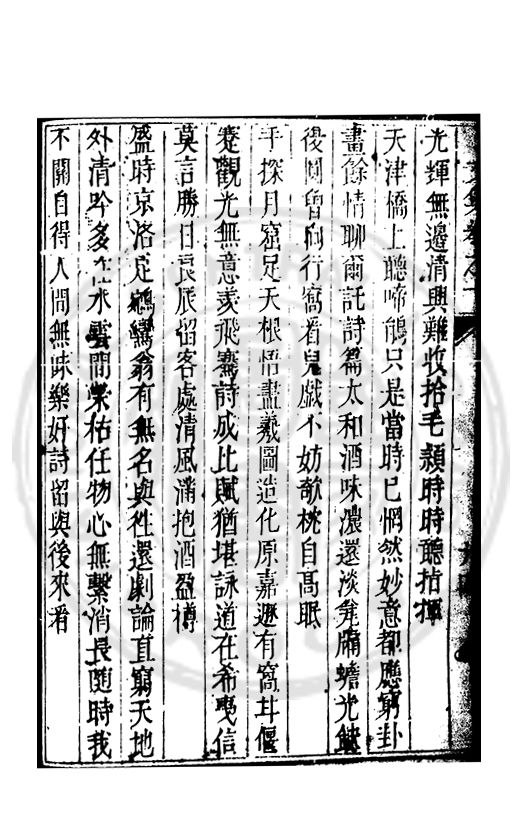 光輝無邊清興難收拾毛頴時時聽指揮
天津橋上聽啼鵑只是當時已惘然妙意都應窮卦
畫餘情聊爾託詩篇太和酒味濃還淡甕牖蟾光缺
復圓曾向行窩看兒戲不妨欹枕自高眠
手探月窟足天根悟盡羲圖造化原嘉遯有窩甘偃
蹇觀光無意羨飛騫詩成比賦猶堪詠道在希夷信
莫言勝日良辰留客處清風滿抱酒盈樽
盛時京洛足鵷鸞翁有無名與性還劇論直窮天地
外清吟多在水雲間榮枯任物心無繫消長隨時我
不關自得人間無味樂好詩留與後來看